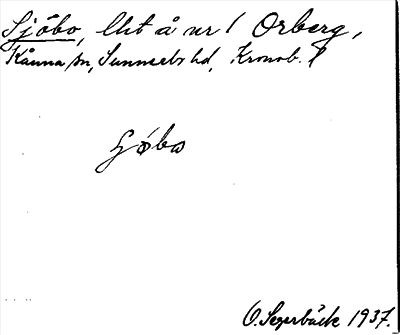 Sjöbo, lht å nr 1 Orberg,
Kånna sn, Sunnerbo hd, Kronob. l
Sjöbo
O. Segerbäck 1937.